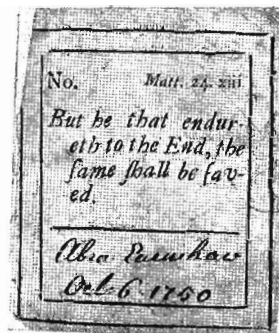 No. Matt. 24. xiii
But he that endur-
eth to the End, the
ſame ſhall be ſav-
ed.
Abra Earnshaw
Oct 6 1750